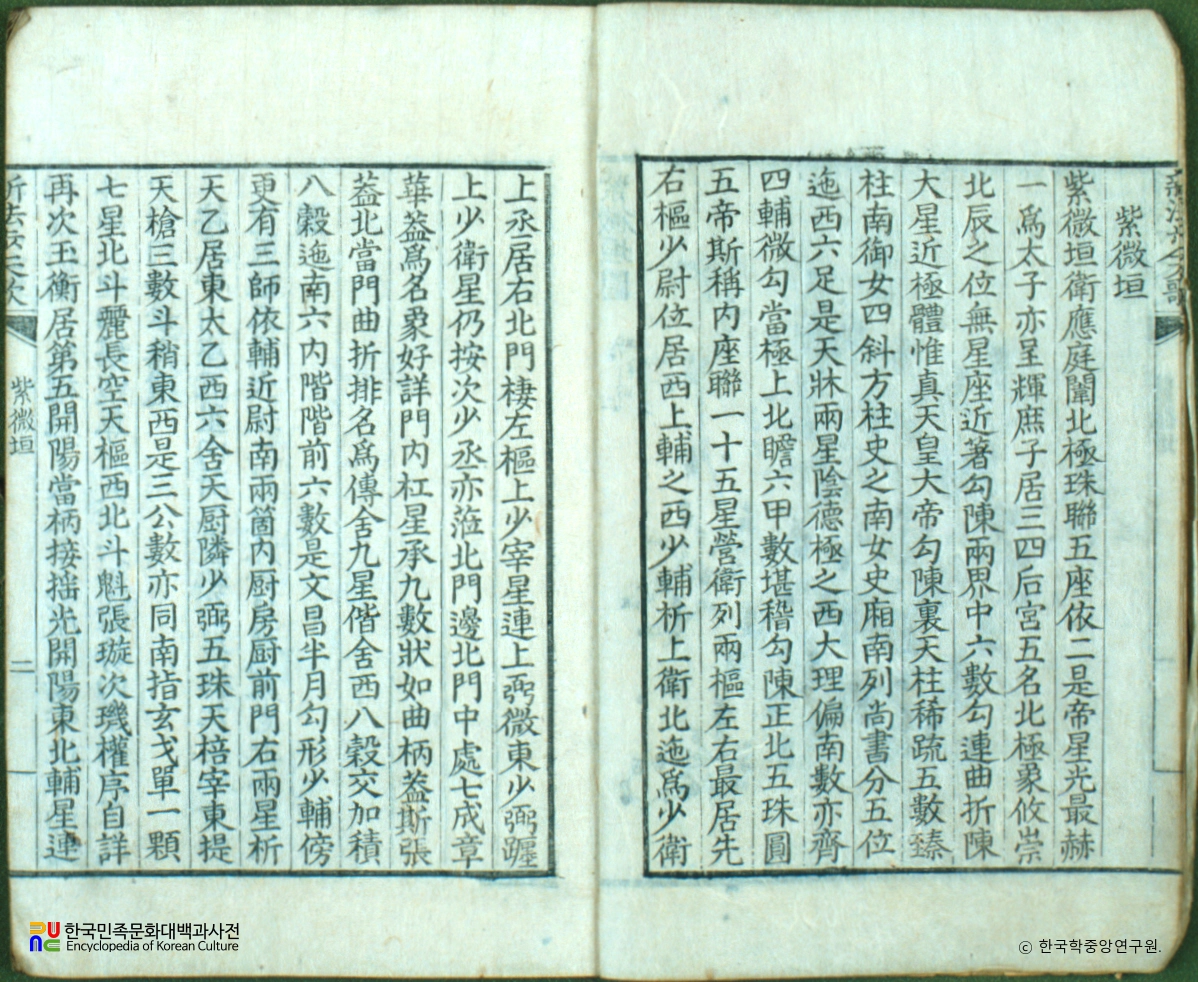 紫微垣
紫微垣衛應庭闈北極珠聯五座依二是帝星光最赫
一爲太子亦呈輝庶子居三四后宮五名北極象攸崇
北辰之位無星座近著勾陳兩界中六數勾連曲折陳
大星近極體惟真天皇大帝勾陳裏天柱稀疏五數臻
柱南御女四斜方柱史之南女史廂南列尚書分五位
迤西六足是天牀兩星陰德極之西大理偏南數亦齊
四輔微勾當極上北瞻六甲數堪稽勾陳正北五珠圓
五帝斯稱内座聯一十五星營衛列兩樞左右最居先
右樞少尉位居西上輔之西少輔析上衛北迤爲少衛
上丞居右北門棲左樞上少宰星連上弼微東少弼躔
上少衛星仍按次少丞亦蒞北門邊北門中處七成章
華葢爲名象好詳門内杠星承九數狀如曲柄葢斯張
葢北當門曲折排名爲傳舍九星偕舍西八穀交加積
八穀迤南六内階階前六數是文昌半月勾形少輔傍
更有三師依輔近尉南兩箇内厨房厨前門右兩星析
天乙居東太乙西六舍天厨隣少弼五珠天棓宰東提
天槍三數斗稍東西是三公數亦同南指玄戈單一顆
七星北斗麗長空天樞西北斗魁張璇次璣權序自詳
再次玉衡居第五開陽當柄接揺光開陽東北輔星連
紫微垣
二
한국민족문화대백과사전
Encyclopedia of Korean Culture
© 한국학중앙연구원.